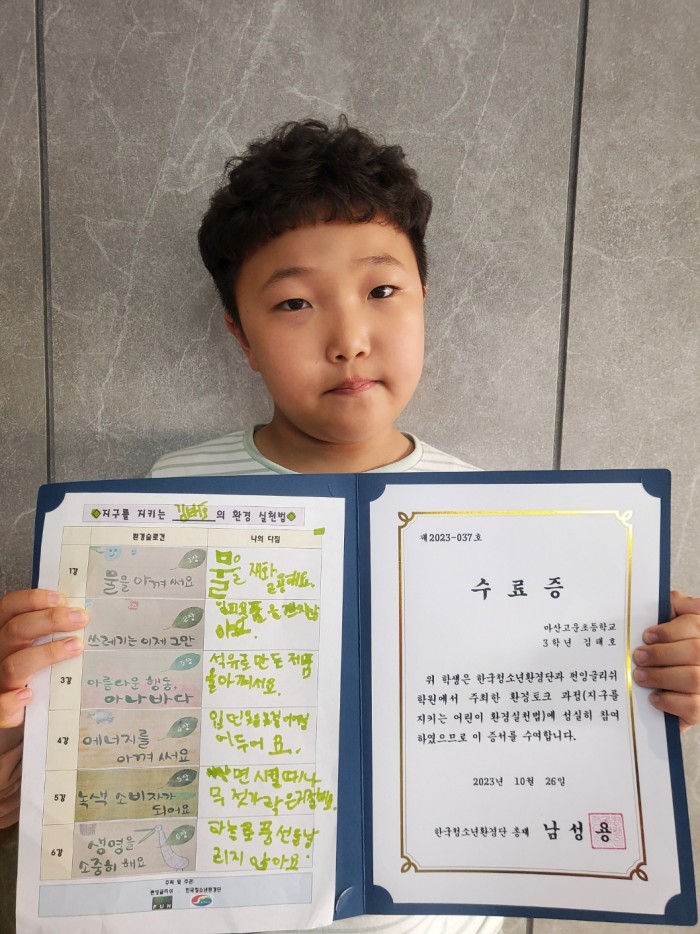 지구를 지키는 김태호 의 환경 실천법
환경슬로건
나의 다짐
1강
물을 아껴 써요
물을
2강
쓰레기는 이제 그만
3강
아름다운 행동,
아나바다
석유로 만든 제품
을 아껴써요.
4강
에너지를
아껴 써요
5강
녹색 소비자가
되어요
6강
생명을
소중히 해요
하늘로 풍선을 날
리지 않아요.
주최 및 주관
펀잉글리쉬
한국청소년환경단
FUN
제2023-037호
수 료 증
마산고운초등학교
3학년 김태호
위 학생은 한국청소년환경단과 펀잉글리쉬
학원에서 주최한 환경토크 과정(지구를
지키는 어린이 환경실천법)에 성실히 참여
하였으므로 이 증서를 수여합니다.
2023년 10월 26일
한국청소년환경단 총재 남성용